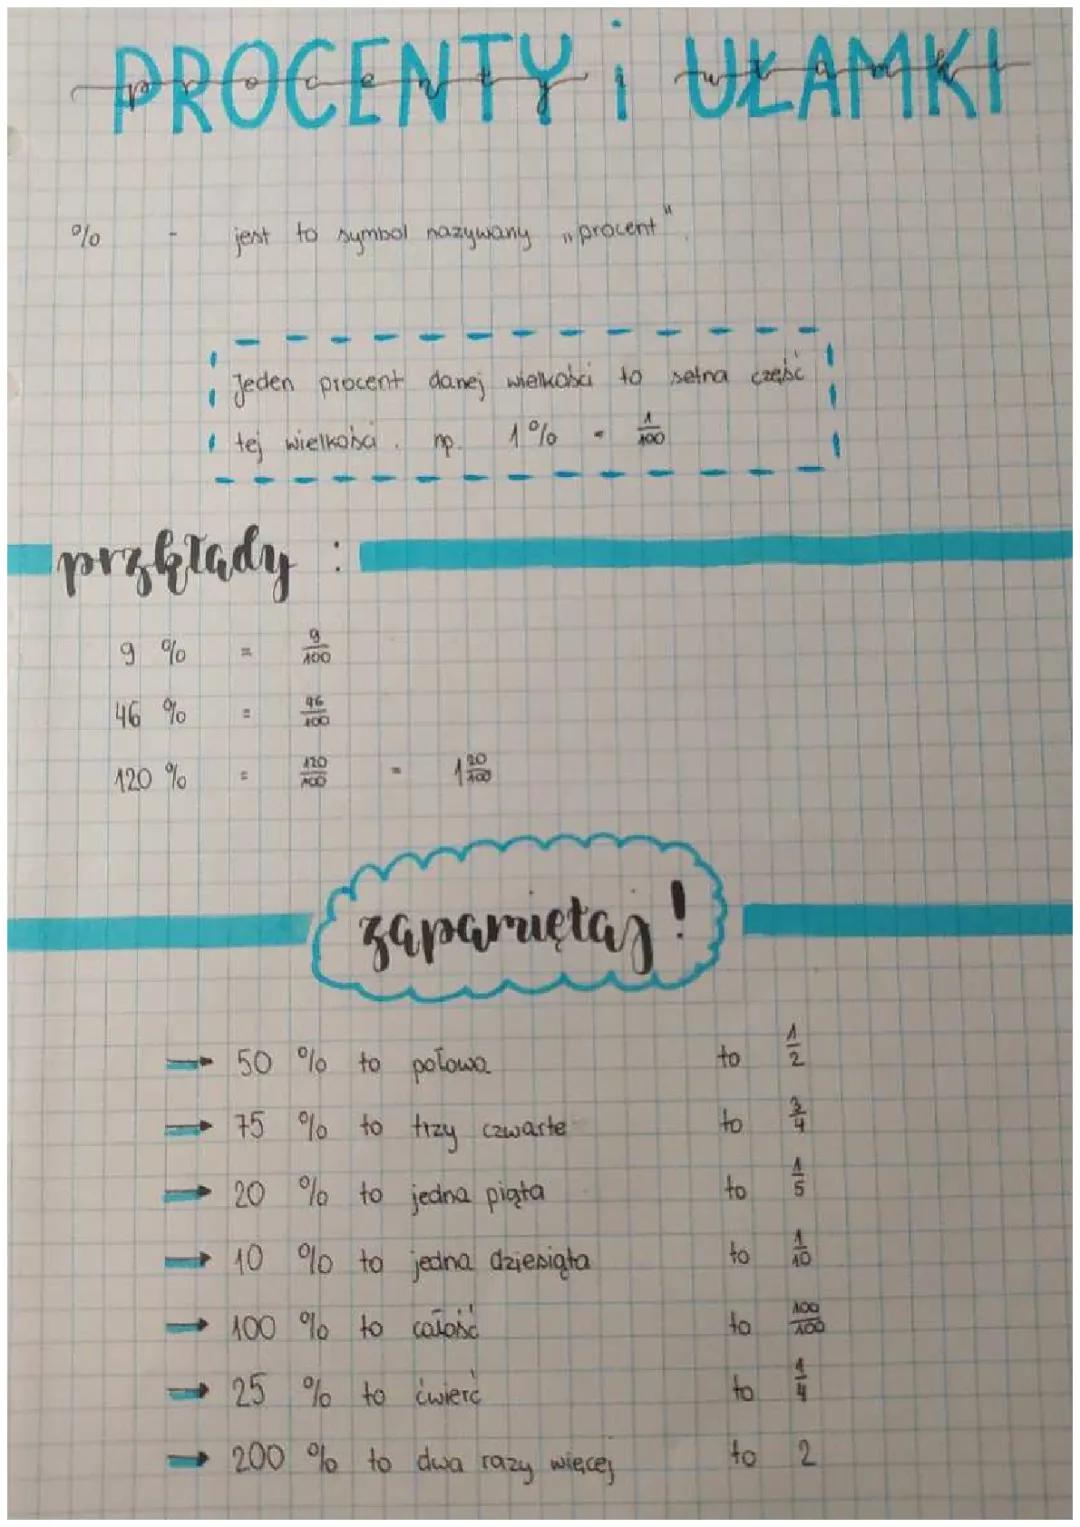 PROCENTY i UŁAMKI
procenty i ułamki
% - jest to symbol nazywany „procent".
Jeden procent danej wielkości to setna część
tej wielkości. np. 1% = 1/100
przkłady :
9 % = 9/100
46 % = 46/100
120 % = 120/100 = 1 20/100
zapamiętaj!
→ 50 % to połowa to 1/2
→ 75 % to trzy czwarte to 3/4
→ 20 % to jedna piąta to 1/5
→ 10 % to jedna dziesiąta to 1/10
→ 100 % to całość to 100/100
→ 25 % to ćwierć to 1/4
→ 200 % to dwa razy więcej to 2